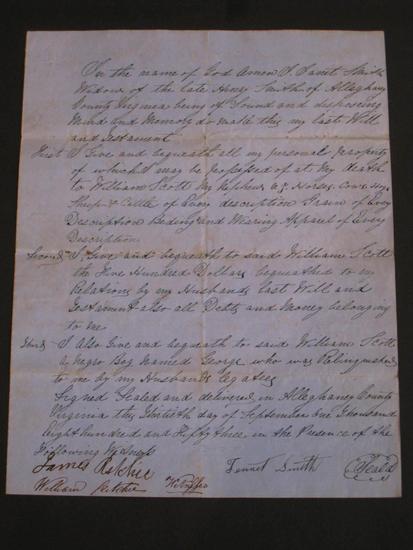 In the name of God Amen I Janet Smith
Widow of the late Henry Smith of Alleghany
County Virginia being of Sound and disposing
Mind and Memory do make this my last Will
and Testament
First I Give and bequeath all my personal property
of which I may be possessed of at My death
to William Scott My Nephew Horses Cows Hogs
Sheep & Cattle of Every description Grain of Every
Description Beding and Waring Apparel of Every
Description
Second I Give and bequeath to said William Scott
the Five Hundred Dollars bequeathed to my
Relations by my Husbands last Will and
Testiment also all Debts and Money belonging
to me
Third I Also Give and bequeath to said William Scott
a negro Boy Named George who was Relinquished
to me by my Husbands legatees
Signed Sealed and delivered in Alleghaney County
Virginia this thirtieth day of September one thousand
Eight hundred and Fifty three in the Presence of the
Following Witness
James Ritchie Jennet Smith Seal
William Ritchie Witnesses